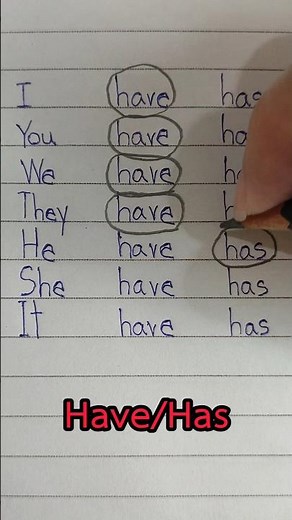 I have has
You have
We have
They have
He have has
She have has
It have has
Have/Has